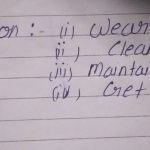 on :- (i) Wear
(ii) Clean
(iii) Maintai
(iv) Get